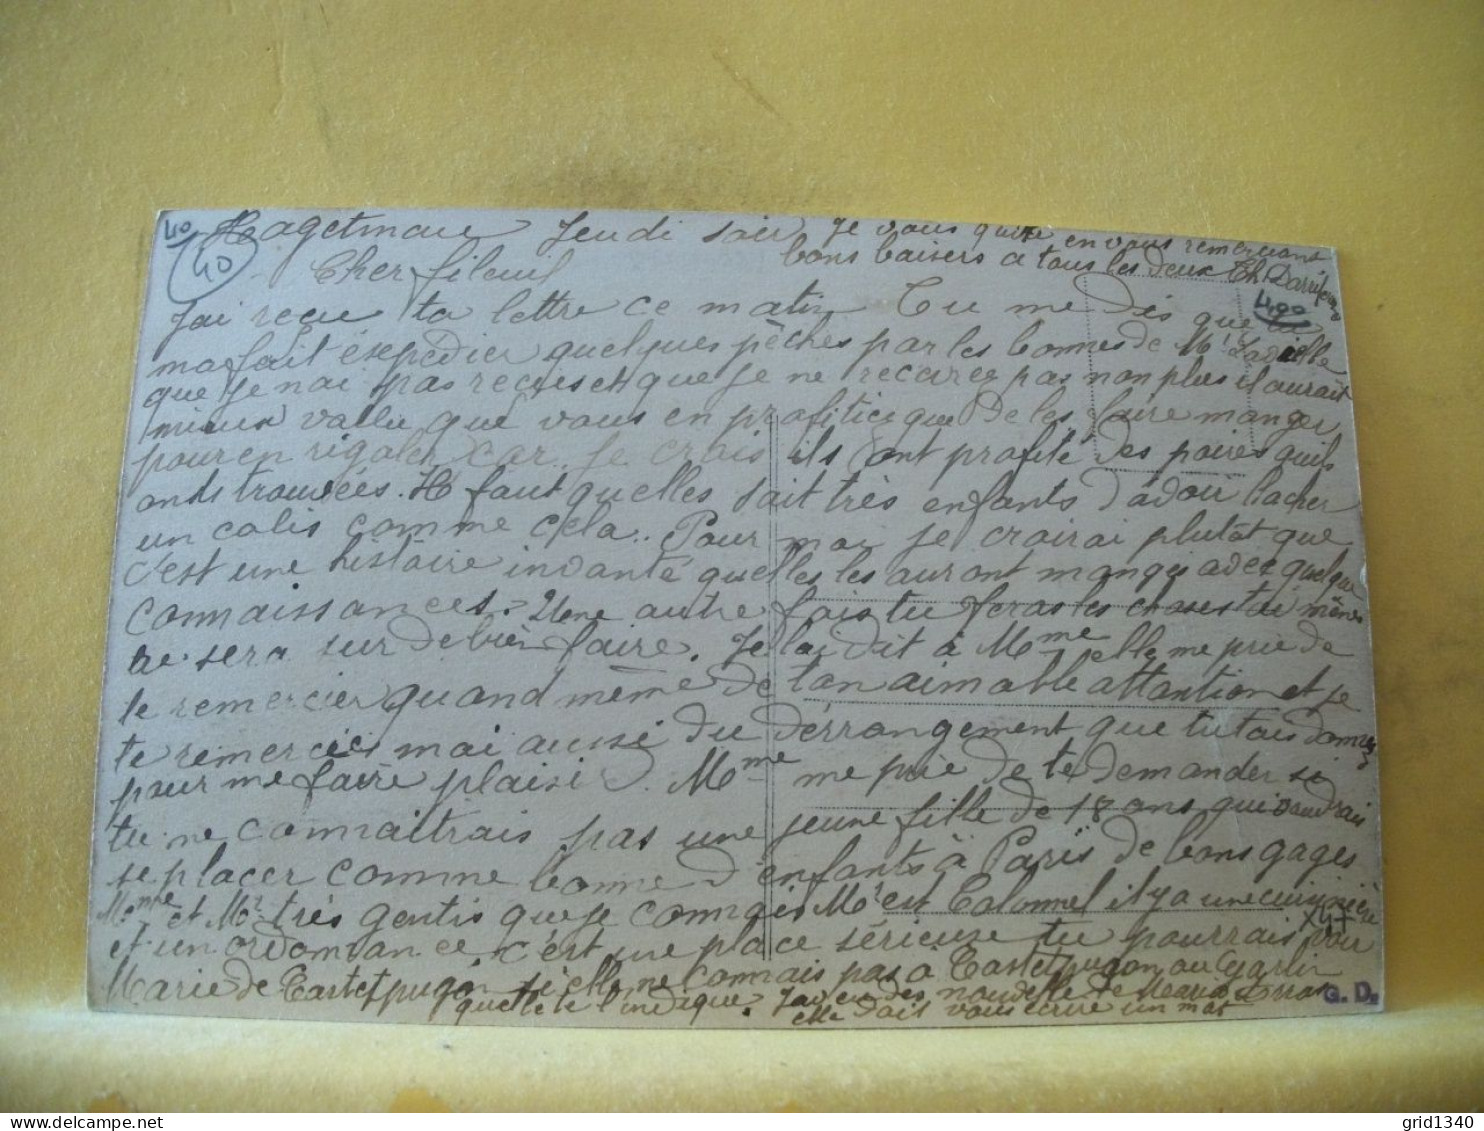 40
40
Hagetmau Jeudi soir
Cher fileuil
J'ai reçu ta lettre ce matin Tu me dis que
ma fait éxepédier quelques pêches par les bonnes de Mr
que je nai pas reçues et que je ne recevrez pas non plus il aurait
mieux vallu que vous en profiticz que de les faire manger
pour en rigoler car je crois ils ont profité des poires quils
onts trouvées. Il faut quelles soit très enfants d'adoir
un colis comme cela.. Pour moi je croirai plutôt que
c'est une histoire invanté quelles les auront mangés avec quelque
connaissances. Une autre fois tu feras les choses toi même
ce sera sur de bien faire. Je la dit à Mme elle me prie de
te remercier quand même de ton aimable attantion et je
te remercie moi aussi du dérrangement que tu tais donnez
pour me faire plaisir. Mme me prie de te demander si
tu ne connaitrais pas une jeune fille de 18 ans qui voudrais
se placer comme bonne d'enfants à Paris de bons gages
Mme et Mr très gentis que je connais Mr est Colonnel il y a une cuisinière
et un ordonnance. c'est une place sérieuse tu pourrais voir
Marie de Castetpugon si elle ne connais pas a Castetpugon ou Garlin
quelle te l'indique. J'ai eu des nouvelle de Maria
elle dois vous écrire un mot
Je vous quitte en vous remerciant
bons baisers a tous les deux Th.
400
X47
G. D.
grid1340